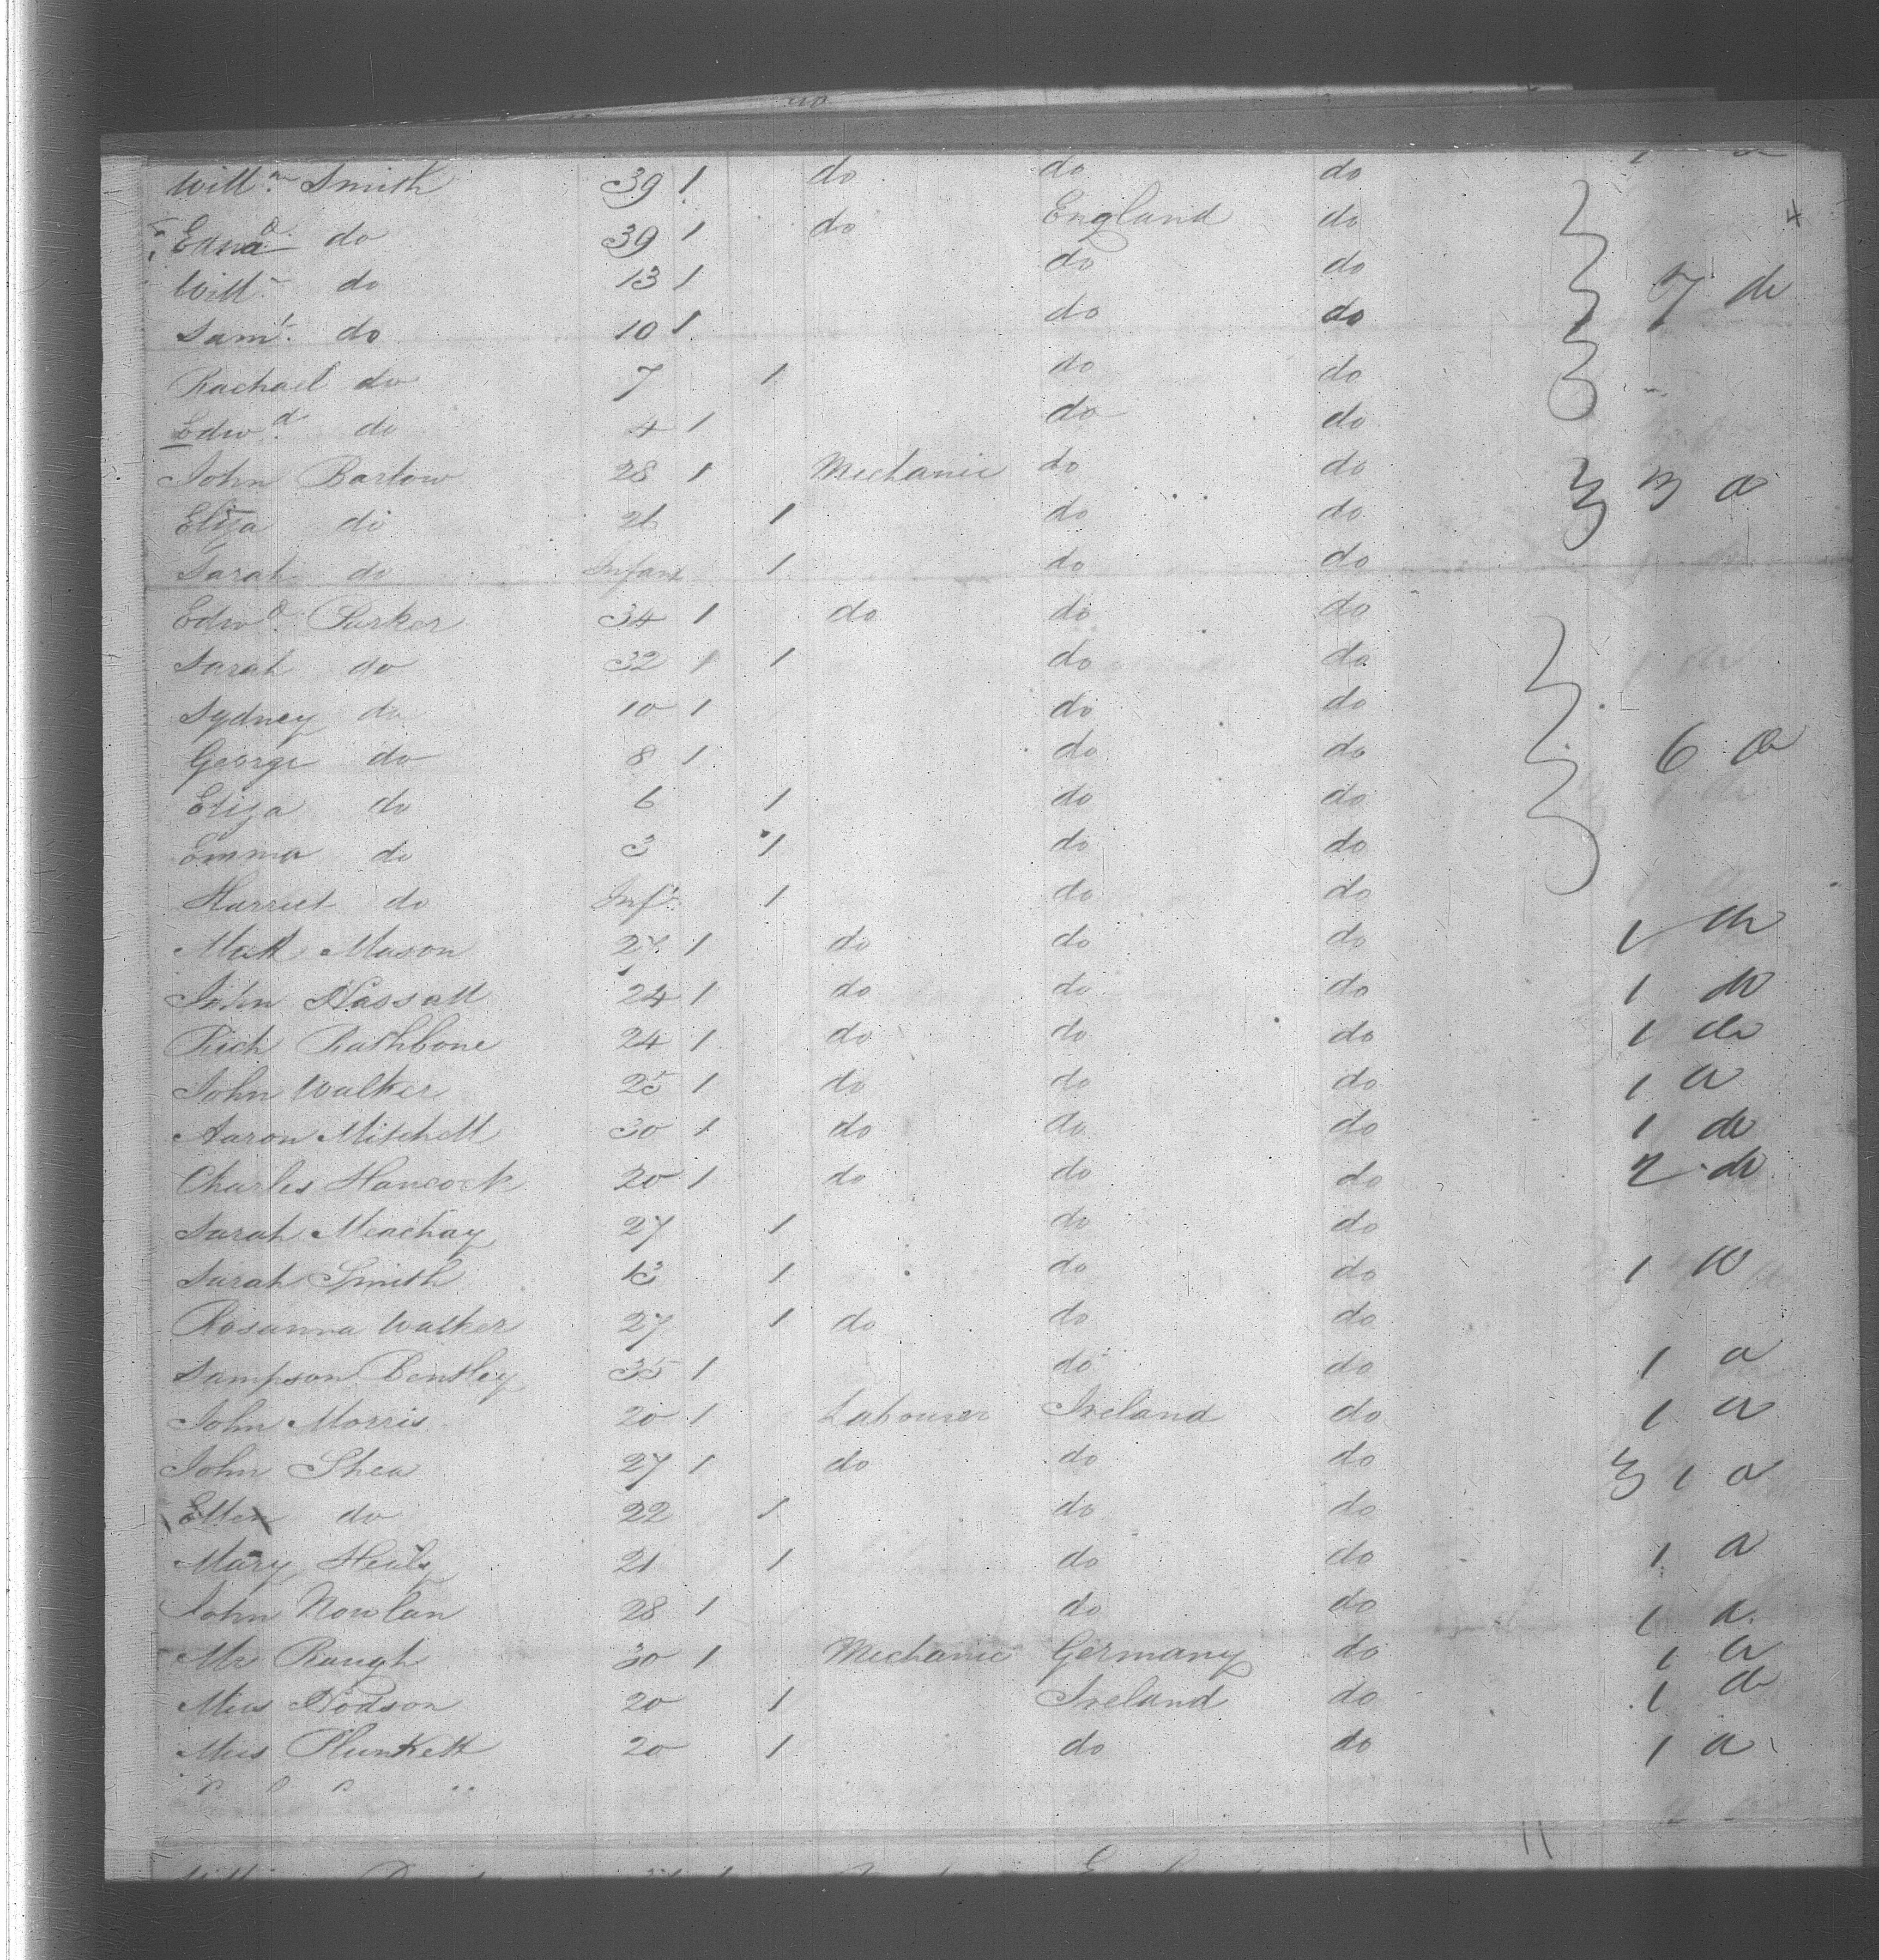 Willm Smith 39 1 do do do
Edwd do 39 1 do England do
Willm do 13 1 do do 7 do
Saml do 10 1 do do
Rachael do 7 1 do do
Edwd do 4 1 do do
John Barlow 28 1 Mechanic do do 3 a
Eliza do 21 1 do do
Sarah do Infant 1 do do
Edwd Parker 34 1 do do do
Sarah do 32 1 1 do do
Sydney do 10 1 do do
George do 8 1 do do 6 a
Eliza do 6 1 do do
Emma do 3 1 do do
Harriet do Inft 1 do do
Matt Mason 27 1 do do do 1 do
John Hassall 24 1 do do do 1 do
Rich Rathbone 24 1 do do do 1 do
John Walker 25 1 do do do 1 a
Aaron Mitchell 30 1 do do do 1 do
Charles Hancock 20 1 do do do 2 do
Sarah Meachay 27 1 do do
Sarah Smith 13 1 do do 1 a
Rosanna Walker 27 1 do do do
Sampson Bentley 35 1 do do 1 a
John Morris 20 1 Labourer Ireland do 1 a
John Shea 27 1 do do do 1 a
Ellen do 22 1 do do
Mary Healy 21 1 do do 1 a
John Nowlan 28 1 do do 1 a
Mr Raugh 30 1 Mechanic Germany do 1 a
Miss Hodson 20 1 Ireland do 1 do
Miss Plunkett 20 1 do do 1 a